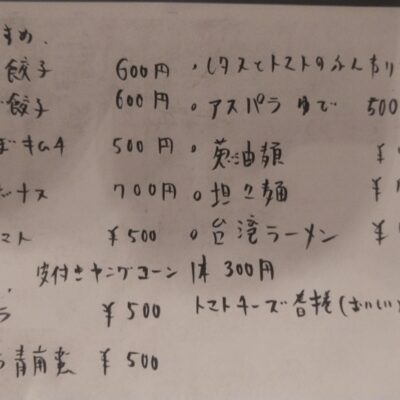 すめ.
餃子 600円 。レタスとトマトのふんわり
餃子 600円 。アスパラ ゆで 500
ぼキムチ 500円 。葱油麺 ¥
ナス 700円 。担々麺 ¥
マト ¥500 。台湾ラーメン ¥
皮付きヤングコーン 1本 300円
ラ ¥500 トマトチーズ春捲(おいしい
青菜 ¥500